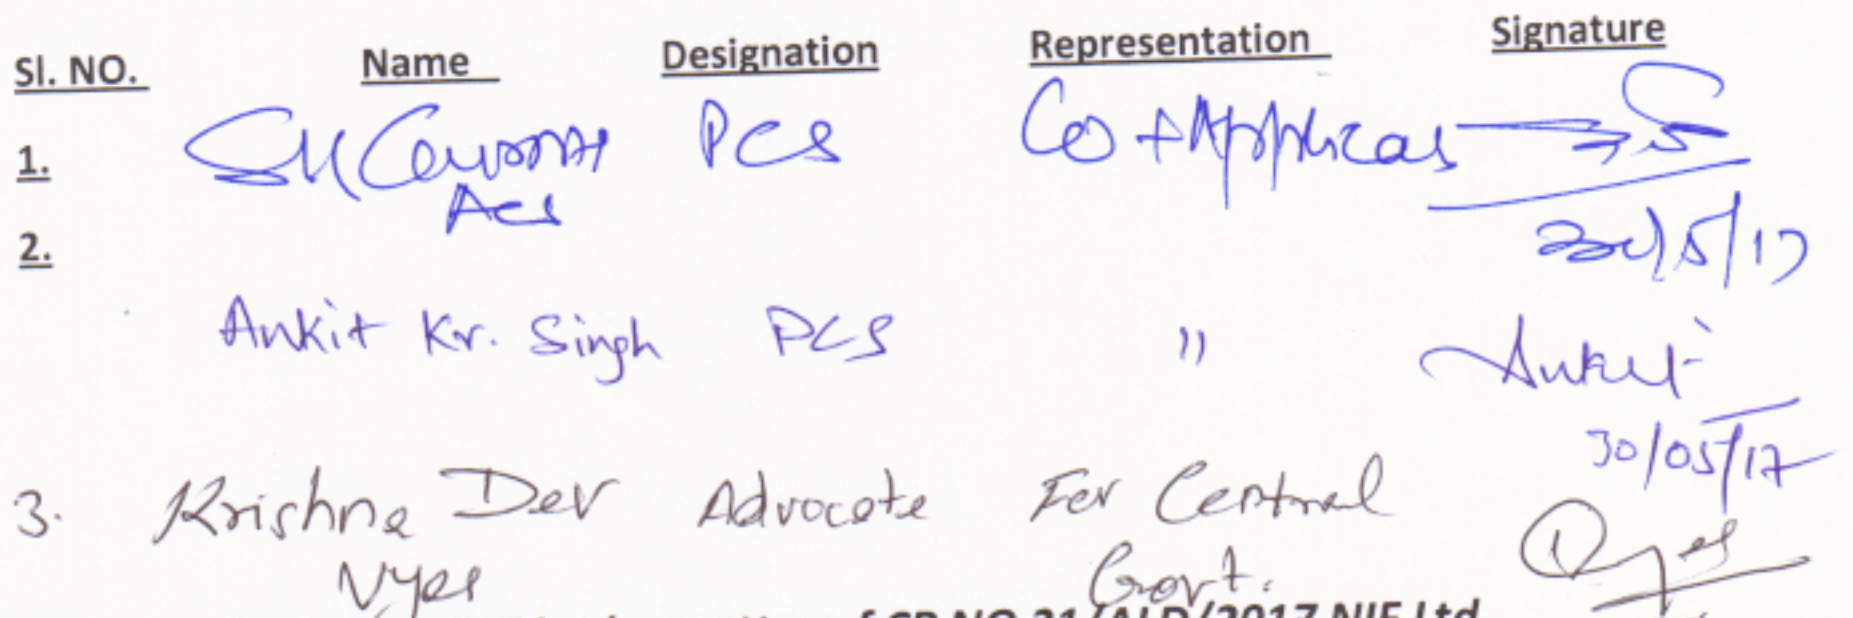 Sl. NO. Name Designation Representation Signature
1. PCS Co + Applicas
ACS
2.
Ankit Kr. Singh PCS " Ankit
30/05/17
3. Krishna Dev Advocate For Central
Vyas Govt.
of CP NO 21/ALD/2017 NIF Ltd